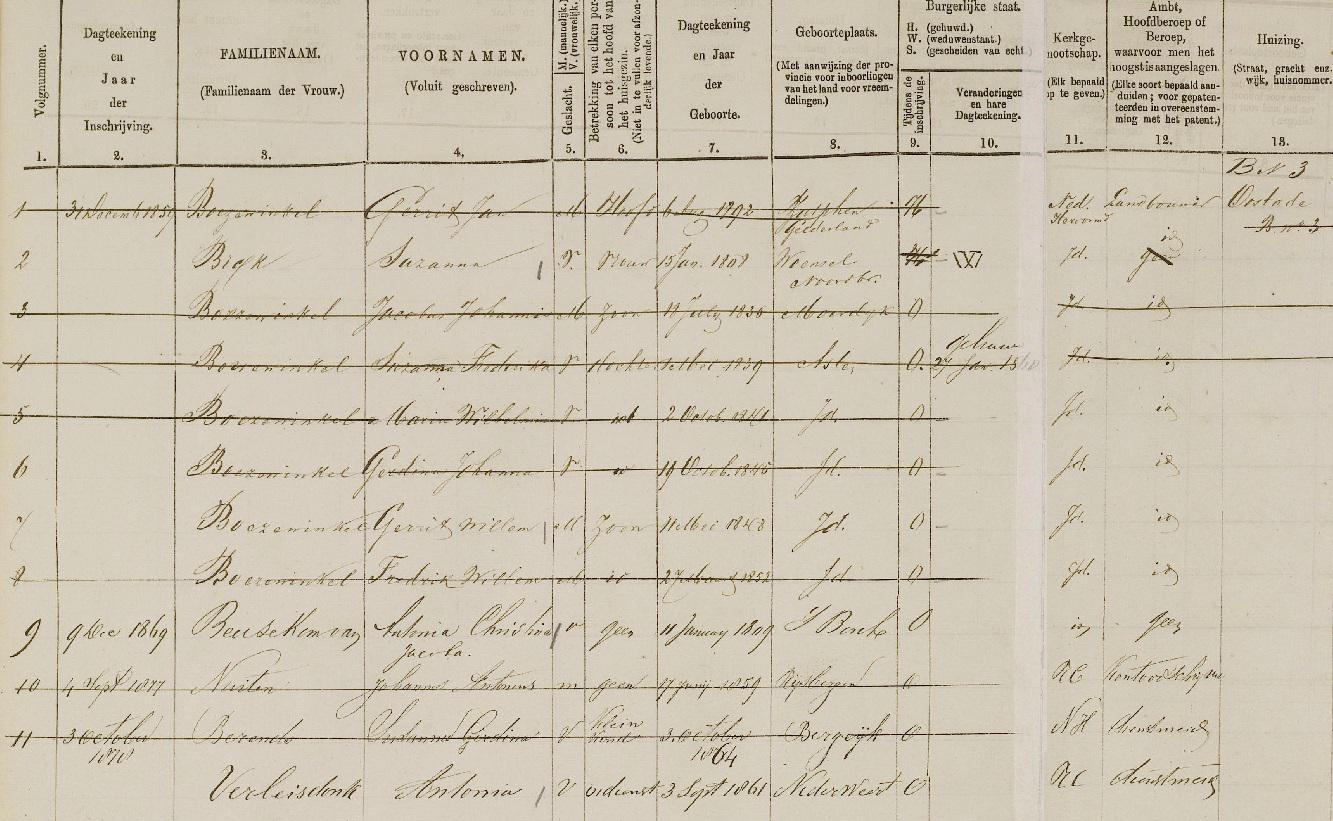 Volgnummer.
1.
Dagteekening
en
Jaar
der
Inschrijving.
2.
FAMILIENAAM.
(Familienaam der Vrouw.)
3.
VOORNAMEN.
(Voluit geschreven).
4.
Geslacht. M. (mannelijk.)
V. (vrouwelijk.)
5.
Betrekking van elken per-
soon tot het hoofd van
het huisgezin.
(Niet in te vullen voor afzon-
derlijk levende.)
6.
Dagteekening
en Jaar
der
Geboorte.
7.
Geboorteplaats.
(Met aanwijzing der pro-
vincie voor inboorlingen
van het land voor vreem-
delingen.)
8.
Burgerlijke staat.
H. (gehuwd.)
W. (weduwenstaat.)
S. (gescheiden van echt
Tijdens de
inschrijving.
9.
Veranderingen
en hare
Dagteekening.
10.
Kerkge-
nootschap.
(Elk bepaald
op te geven.)
11.
Ambt,
Hoofdberoep of
Beroep,
waarvoor men het
hoogst is aangeslagen.
(Elke soort bepaald aan-
duiden; voor gepaten-
teerden in overeenstem-
ming met het patent.)
12.
Huizing.
(Straat, gracht enz.
wijk, huisnommer.
13.
B N 3
1 31 Decemb 1859 Boezewinkel Gerrit Jan M Hoofd 1792 Zutphen H Ned. Landbouwer Oostade
Gelderland Hervormd B no. 3
2 Suzanna V. Vrouw 15 Jan. 1808 Woensel H W Jd. id
Noordbr.
3 Boezewinkel Jacobus Johannes M Zoon 18 July 1836 Moerdyk O Jd id
gehuwd
4 Boezewinkel Suzanna Frederika V Dochter Mei 1839 Asten O. 27 Jan. 1860 Jd. id
5 Boezewinkel Maria Wilhelmina V id 2 Octob. 1841 Jd. O Jd. id
6 Boezewinkel Gerdina Johanna V id 19 Octob. 1845 Jd. O Jd. id
7 Boezewinkel Gerrit Willem M Zoon 11 Mei 1848 Jd. O Jd. id
8 Boezewinkel Fredrik Willem M id 27 Maart 1852 Jd O Jd. id
9 9 Dec 1869 Beusekom van Antonia Christina v geen 11 January 1809 S Bosch O id geen
Jacoba.
10 4 Sept 1877 Nuiten Johannes Antonius m geen 17 1859 Rijsbergen O RC
11 3 October Berends Gerdina V Klein 3 October Bergeyk O NH dienstmeid
1878 kind 1864
Verleisdonk Antonia V dienst 3 Sept 1861 Nederweert O RC dienstmeid